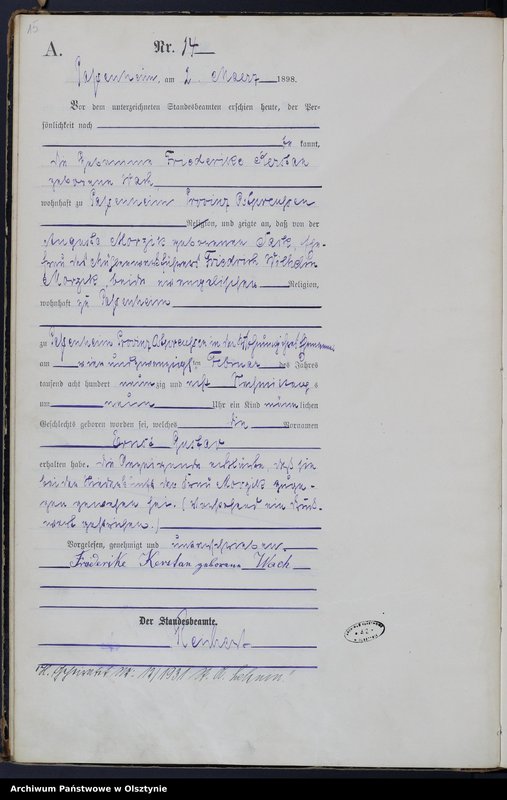 15
A.
Nr. 14
Passenheim, am 2. Maerz 1898.
Vor dem unterzeichneten Standesbeamten erschien heute, der Per-
sönlichkeit nach
be kannt,
die Hebamme Friederike Kerstan
geborene Wach
wohnhaft zu Passenheim Provinz Ostpreussen
Religion, und zeigte an, daß von der
Auguste Morzik geborenen, Ehe-
frau des Friedrich Wilhelm
Morzik, beide evangelischer Religion,
wohnhaft zu Passenheim
zu Passenheim Provinz Ostpreussen in der Wohnung ihres Ehemannes
am vier und zwanzigsten Februar des Jahres
tausend acht hundert neunzig und acht Nachmittags
um neun Uhr ein Kind männlichen
Geschlechts geboren worden sei, welches die Vornamen
Ernst Gustav
erhalten habe. Die Anzeigende erklärte, daß sie
bei der Niederkunft der Frau Morzik zuge-
gen gewesen sei. (Vorstehend ein Druck-
wort gestrichen.)
Vorgelesen, genehmigt und unterschrieben.
Friederike Kerstan geborene Wach
Der Standesbeamte.
Archiwum Państwowe w Olsztynie